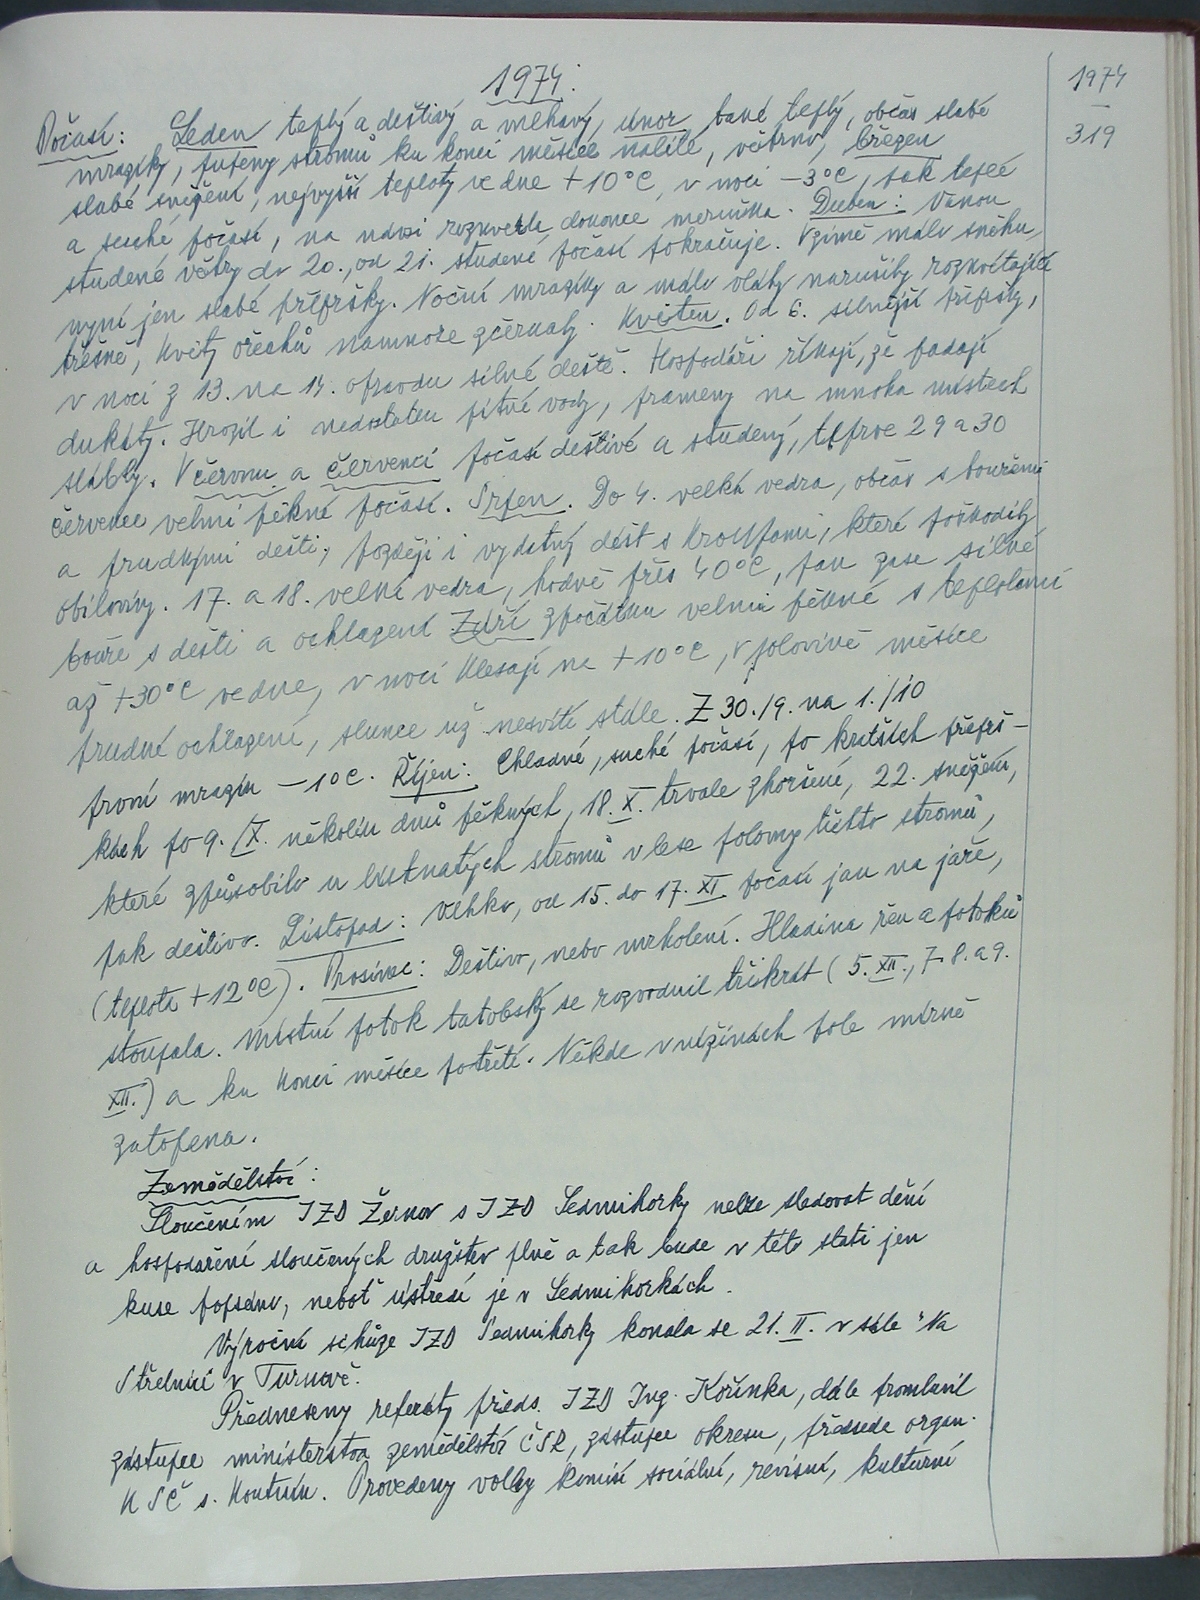 1974:
1974
319
Počasí: Leden teplý a deštivý a mlhavý, únor také teplý, občas slabé
mrazíky, pupeny stromů ku konci měsíce nalité, větrno, březen
slabé sněžení, nejvyšší teploty ve dne +10°C, v noci –3°C, pak teplé
a suché počasí, na návsi rozkvetla dokonce meruňka. Duben: Vanou
studené větry do 20., od 21. studené počasí pokračuje. V zimě málo sněhu,
nyní jen slabé přepršky. Noční mrazíky a málo vláhy narušily rozkvétající
třešně, květy ořechů namnoze zčernaly. Květen. Od 6. silnější přepršky,
v noci z 13. na 14. opravdu silné deště. Hospodáři říkají, že padají
dukáty. Hrozil i nedostatek pitné vody, prameny na mnoha místech
slábly. V červnu a červenci počasí deštivé a studený, teprve 29 a 30
července velmi pěkné počasí. Srpen. Do 4. velká vedra, občas s bouřemi
a prudkými dešti, později i vydatný déšť s kroupami, které poškodily
obiloviny. 17. a 18. velká vedra, hodně přes 40°C, pak zase silné
bouře s dešti a ochlazení Září zpočátku velmi pěkné s teplotami
až +30°C ve dne, v noci klesají na +10°C, v polovině měsíce
prudké ochlazení, slunce už nesvítí stále. Z 30./9. na 1./10
první mrazík –1°C. Říjen: Chladné, suché počasí, po kratších přeprš–
kách po 9./X. několik dnů pěkných, 18. X. trvale zhoršení, 22. sněžení,
které způsobilo u listnatých stromů v lese polomy těchto stromů,
pak deštivo. Listopad: Vlhko, od 15. do 17. XI počasí jak na jaře,
(teplota +12°C). Prosinec: Deštivo, nebo mrholení. Hladina řek a potoků
stoupala. Místní potok tatobský se rozvodnil třikrát (5. XII., 7. 8. a 9.
XII.) a ku konci měsíce potřetí. Někde v nížinách pole mírně
zatopena.
Zemědělství:
Sloučením JZD Žernov s JZD Sedmihorky nelze sledovat dění
a hospodaření sloučených družstev plně a tak bude v této stati jen
kuse popsáno, neboť ústředí je v Sedmihorkách.
Výroční schůze JZD Sedmihorky konala se 21. II. v sále "Na
Střelnici v Turnově.
Předneseny referáty předs. JZD Ing. Kořínka, dále promluvil
zástupce ministerstva zemědělství ČSR, zástupce okresu, předseda organ.
KSČ s. Provedeny volby komisí sociální, revisní, kulturní